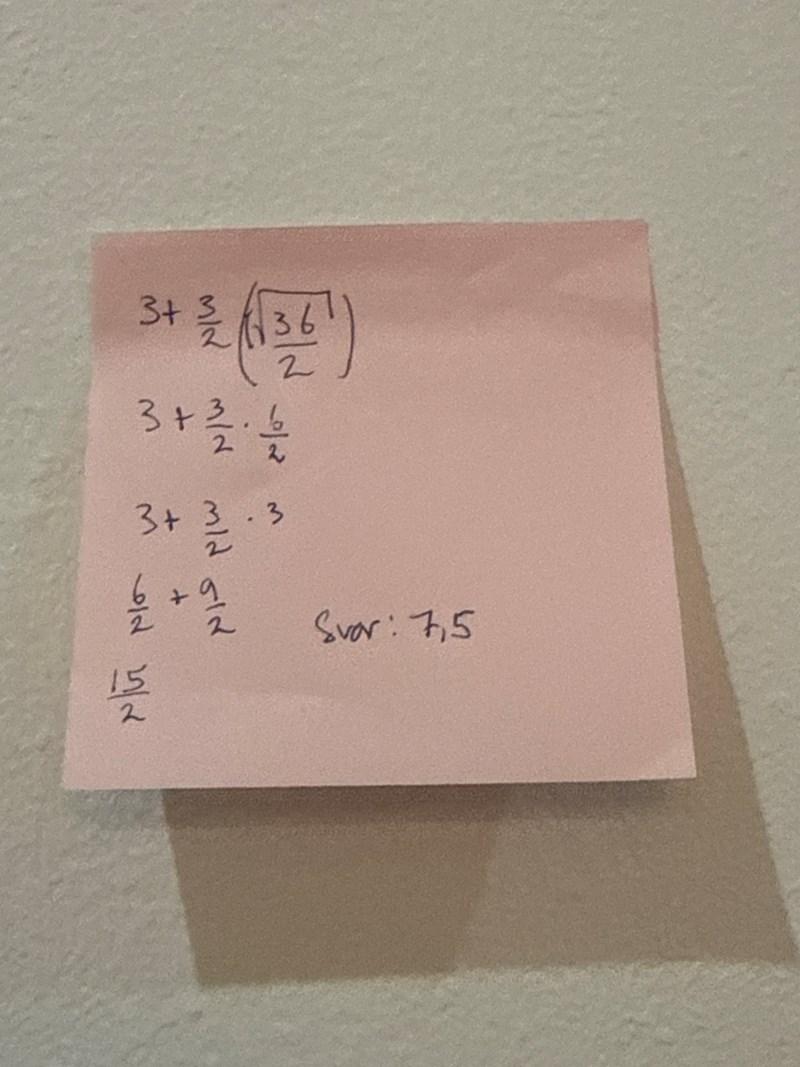 3 + 3/2 (√36/2)
3 + 3/2 · 6/2
3 + 3/2 · 3
6/2 + 9/2
Svar: 7,5
15/2